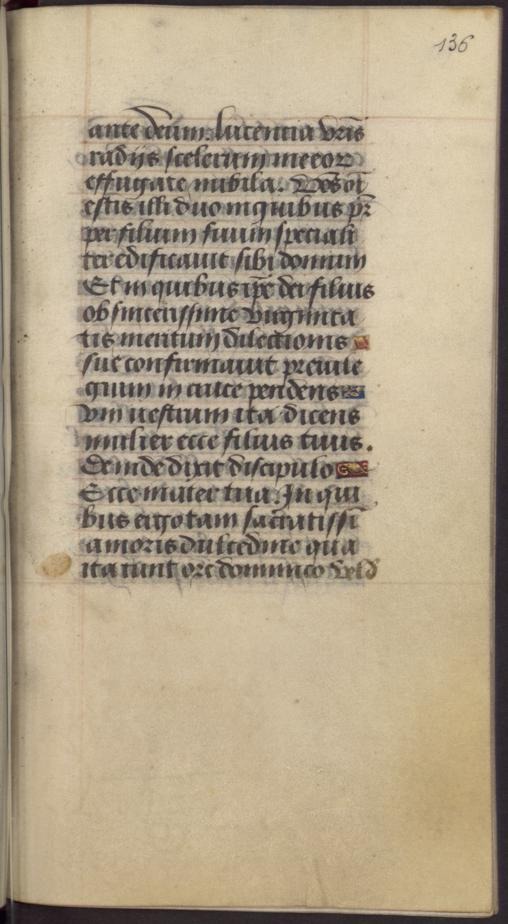 136
ante deum lucentia vris
radijs scelerum meor
effugate nubila. Vos
estis illi duo in quibus pr
per filium suum speciali
ter edificauit sibi domum
Et in quibus ipe dei filius
ob sincerissime virginita
tis meritum dilectionis
sue confirmauit preuile
gium in cruce pendens
vni uestrum ita dicens
mulier ecce filius tuus.
Deinde dixit discipulo
Ecce mater tua. In qui
bus ergo tam sacratissi
amoris dulcedine qua
ita iunt ore dominico